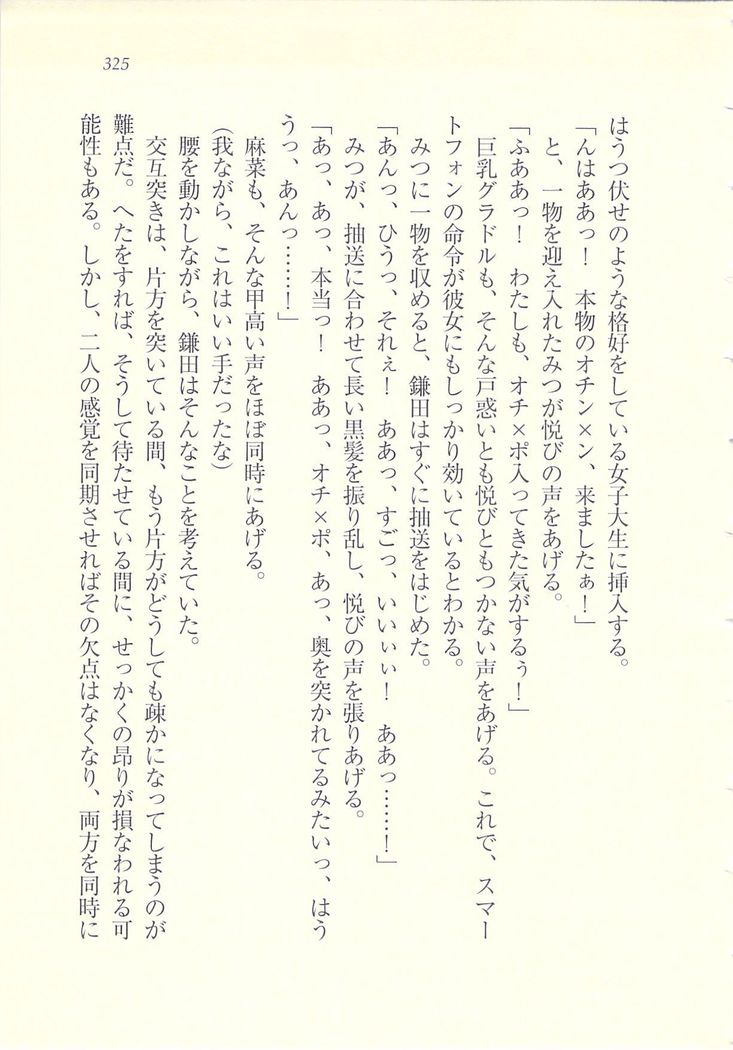 325
はうつ伏せのような格好をしている女子大生に挿入する。
「んはああっ！　本物のオチン×ン、来ましたぁ！」
と、一物を迎え入れたみつが悦びの声をあげる。
「ふああっ！　わたしも、オチ×ポ入ってきた気がするぅ！」
巨乳グラドルも、そんな戸惑いとも悦びともつかない声をあげる。これで、スマー
トフォンの命令が彼女にもしっかり効いているとわかる。
みつに一物を収めると、鎌田はすぐに抽送をはじめた。
「あんっ、ひうっ、それぇ！　ああっ、すごっ、いいぃぃ！　ああっ……！」
みつが、抽送に合わせて長い黒髪を振り乱し、悦びの声を張りあげる。
「あっ、あっ、本当っ！　ああっ、オチ×ポ、あっ、奥を突かれてるみたいっ、はう
うっ、あんっ……！」
麻菜も、そんな甲高い声をほぼ同時にあげる。
（我ながら、これはいい手だったな）
腰を動かしながら、鎌田はそんなことを考えていた。
交互突きは、片方を突いている間、もう片方がどうしても疎かになってしまうのが
難点だ。へたをすれば、そうして待たせている間に、せっかくの昂りが損なわれる可
能性もある。しかし、二人の感覚を同期させればその欠点はなくなり、両方を同時に